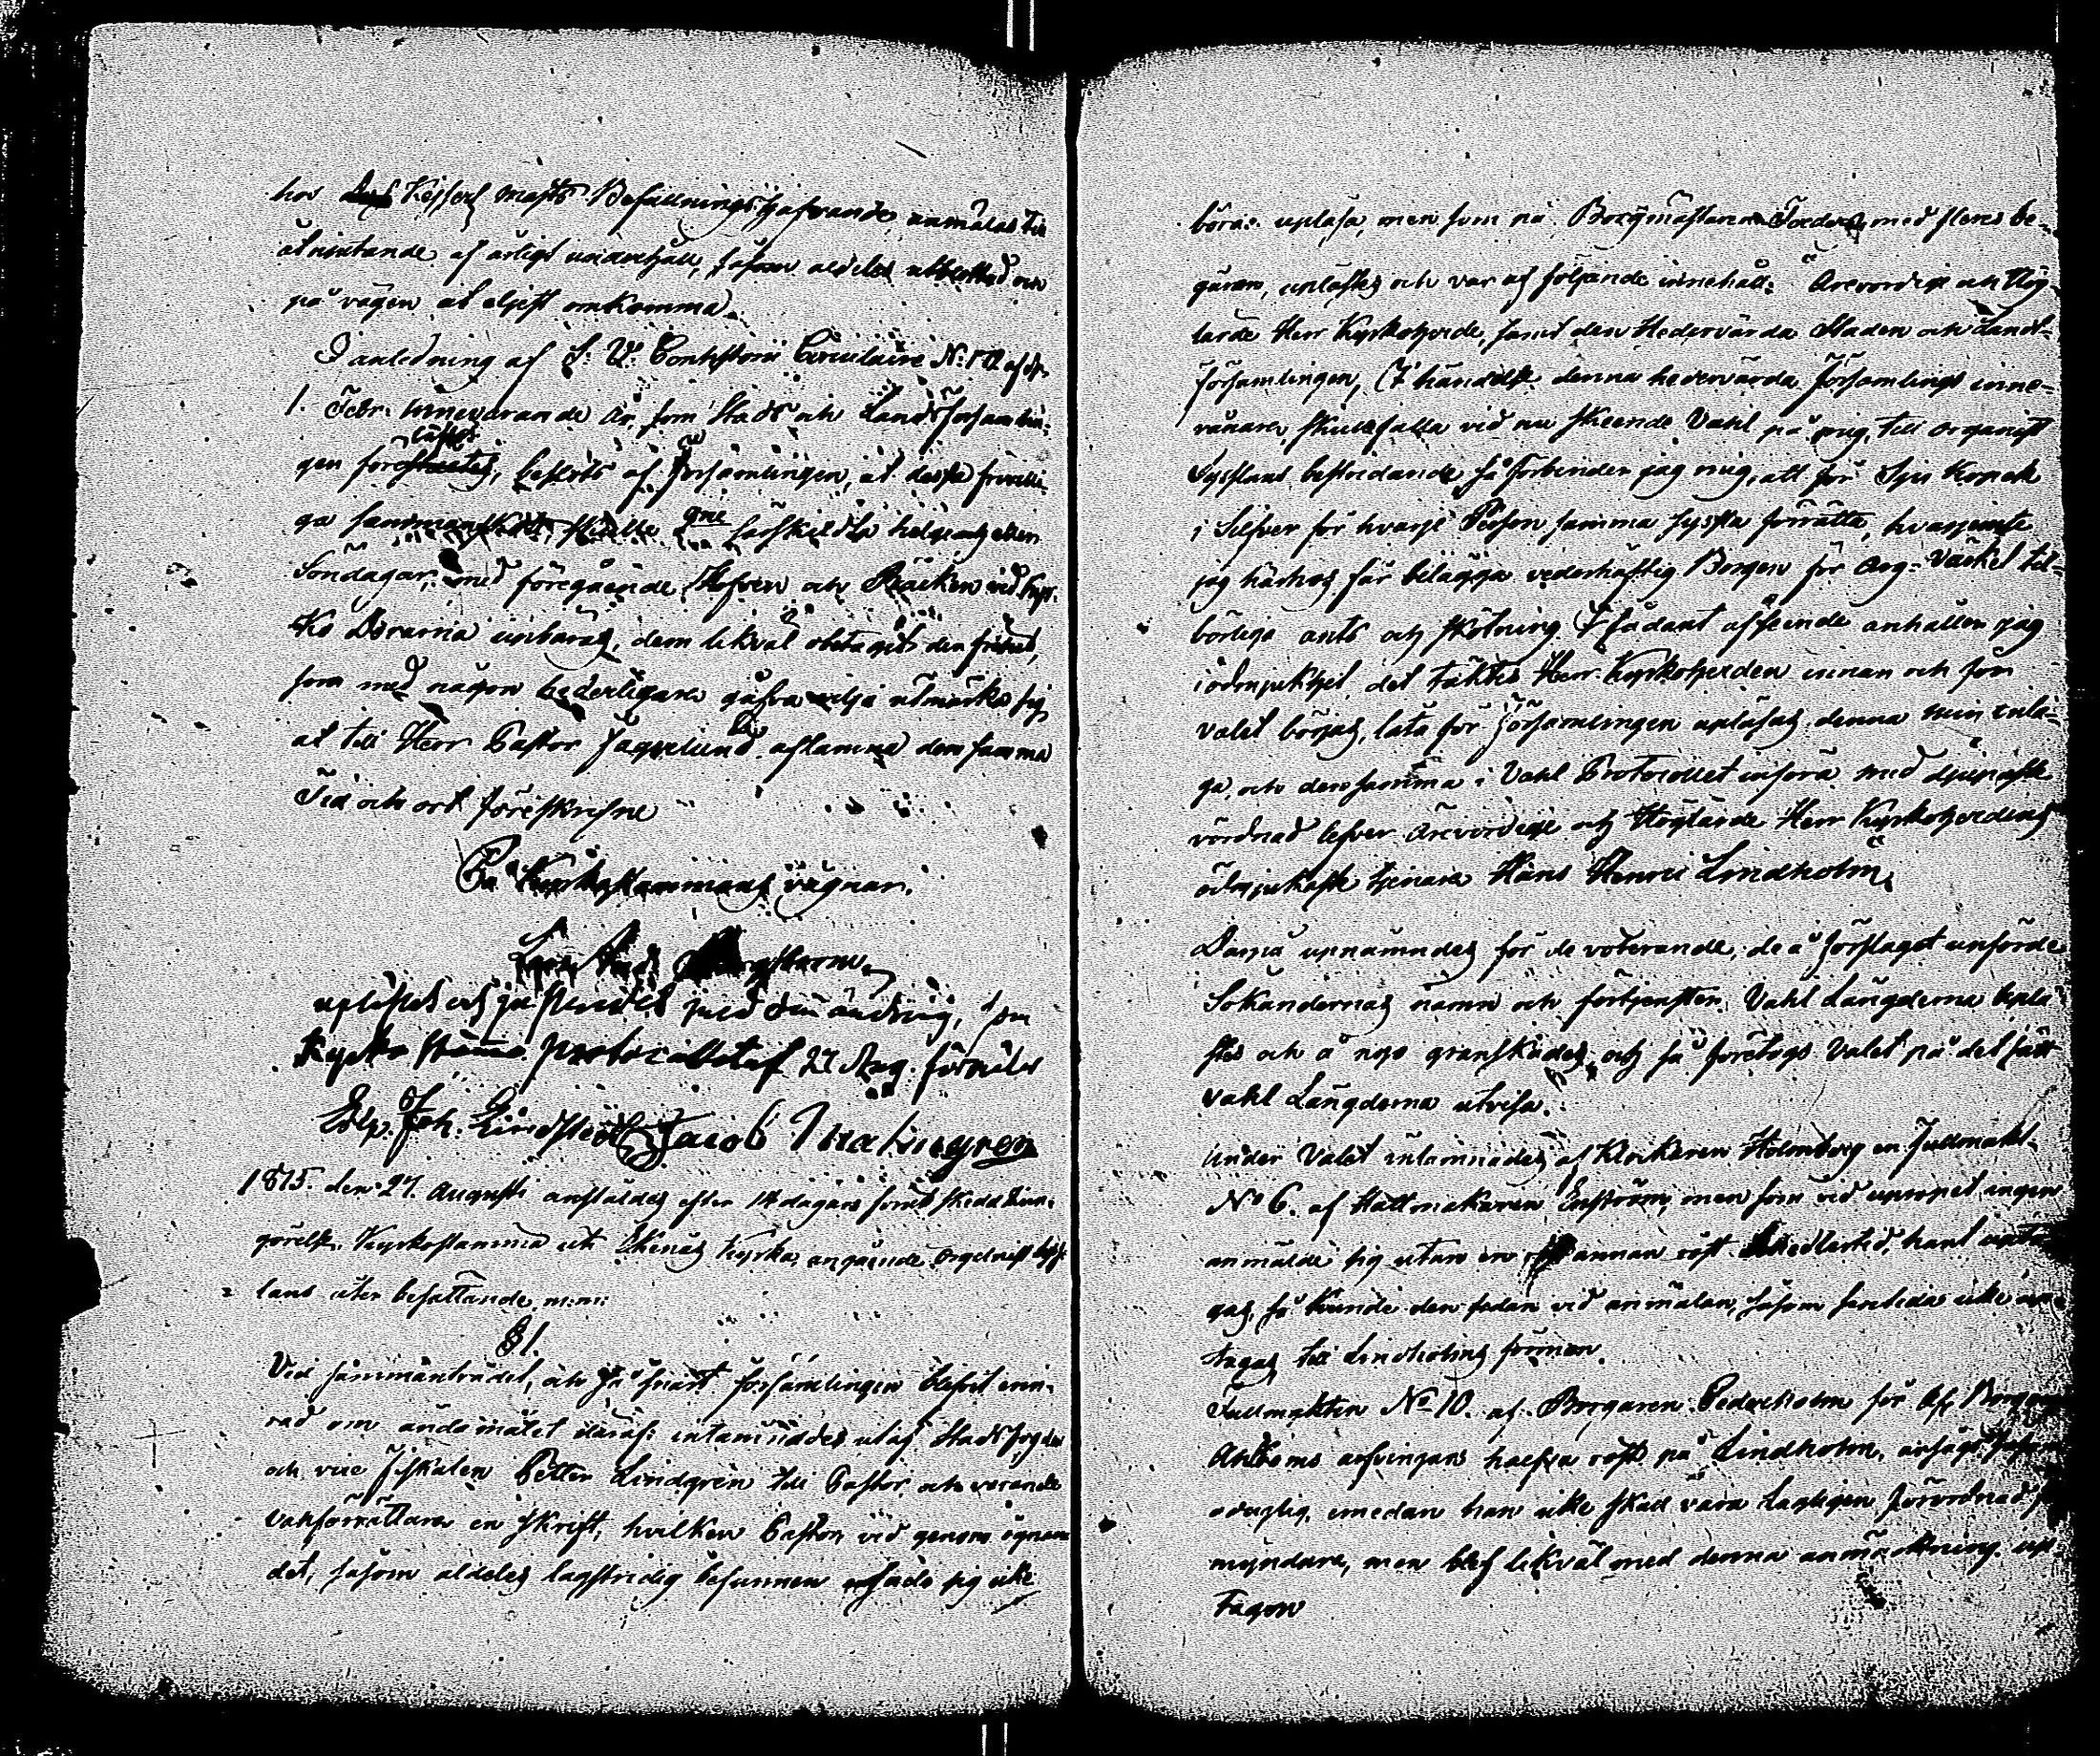 hos Kejserl Majts Befallningshafvande anmälas till
åtnjutande af årligt underhåll, såsom aldeles utblottad och
på vägen at eljest omkomma.
I anledning af L: V: Consistorii Circulaire N:o af d.
1. Febr. innevarande år, som Stads och Landsförsamlin-
gen förelästes, beslöts af Församlingen, at desse frivilli-
ga sammanskott skulle gne särskildta helgedags eller
Söndagar, med föregående Håfven och Bäcken vid Kyr-
ko Dörarna upbäras, dem likväl obetagit den frihet,
som med någon hederligare gåfva vilja utmärka sig
at till Herr Pastor Fagerlund aflämna den samma
Tid och ort föreskrefne
På Kyrkostämmans vägnar.
uplästes och justerades med den ändring, som
Kyrko stämmo protocollet af 27 Aug. förmäler
Joh. Lindstedt Jacob Malmgren
1815. den 27. Augusti anstäldes efter 14 dagars förut skedd kun-
görelse Kyrkostämma uti Ekenäs Kyrka, angående Orgelnist syss-
lans åter besättande m:m:
§ 1.
Vid sammanträdet, och så snart församlingen blifvit erin-
rad om ändamålet däraf: inlämnades utaf Stadsfogden
och vice Fiskalen Petter Lindgren till Pastor och varande
valförrättare en skrift, hvilken Pastor vid genom ögnan-
det, såsom aldeles lagstridig befunnen ansåde sig icke
böra: upläsa, men som på Borgmästaren med fleres be-
gäran, uplästes och var af följande innehåll: Ärevördige och Hög-
lärde Herr Kyrkoherde, samt den Hedervärda Staden och Lands-
församlingen, I händelse denna hedervärda Församlings inne-
vånare, skulle falla vid nu skeende Vahl på mig, till Organist
Sysslans bestridande så förbinder jag mig, att för Sju Kopek
i Silfver för hvarje Person samma syssla förrätta, hvarjemte
jag härhos får bilägga vederhäftig Borgen för Org-Värket till-
börliga ants och skötning I sådant afseende anhåller jag
ödmjukhet, det täktes Herr Kyrkoherden innan och förr
valet börjas, låta för Församlingen upläsas denna min inla-
ga, och densamma i Vahl Protocollet införa med djupaste
vördnad lefver Ärevördige och Höglärde Herr Kyrkoherdens
ödmjukaste tjenare Hans Henric Lindholm.
Darpå upnämndes för de voterande, de å Förslaget upförde
Sökandernas namn och förtjenster. Vahl Längderna uplä-
stes och å nyo granskades, och så företogs Valet på det sätt
Vahl Längderna utvisa.
Under Valet inlämnades af Klockaren Holmberg en Fullmakt
N:o 6. af Hattmakaren Enström, men som vid upropet ingen
anmälde sig utan en annan röst hant
gas, så kunde den sedan vid anmälan, såsom icke an-
tagas till Lindholms förmån.
Fullmakten N:o 10. af Borgaren Pederholm för Afl. Borgaren
Ahlboms arfvingars halfva röst på Lindholm, ansågs såsom
ogiltig, emedan han icke skall vara Lagligen förordnad för-
myndare, men blef likväl med denna anmärkning up-
tagen